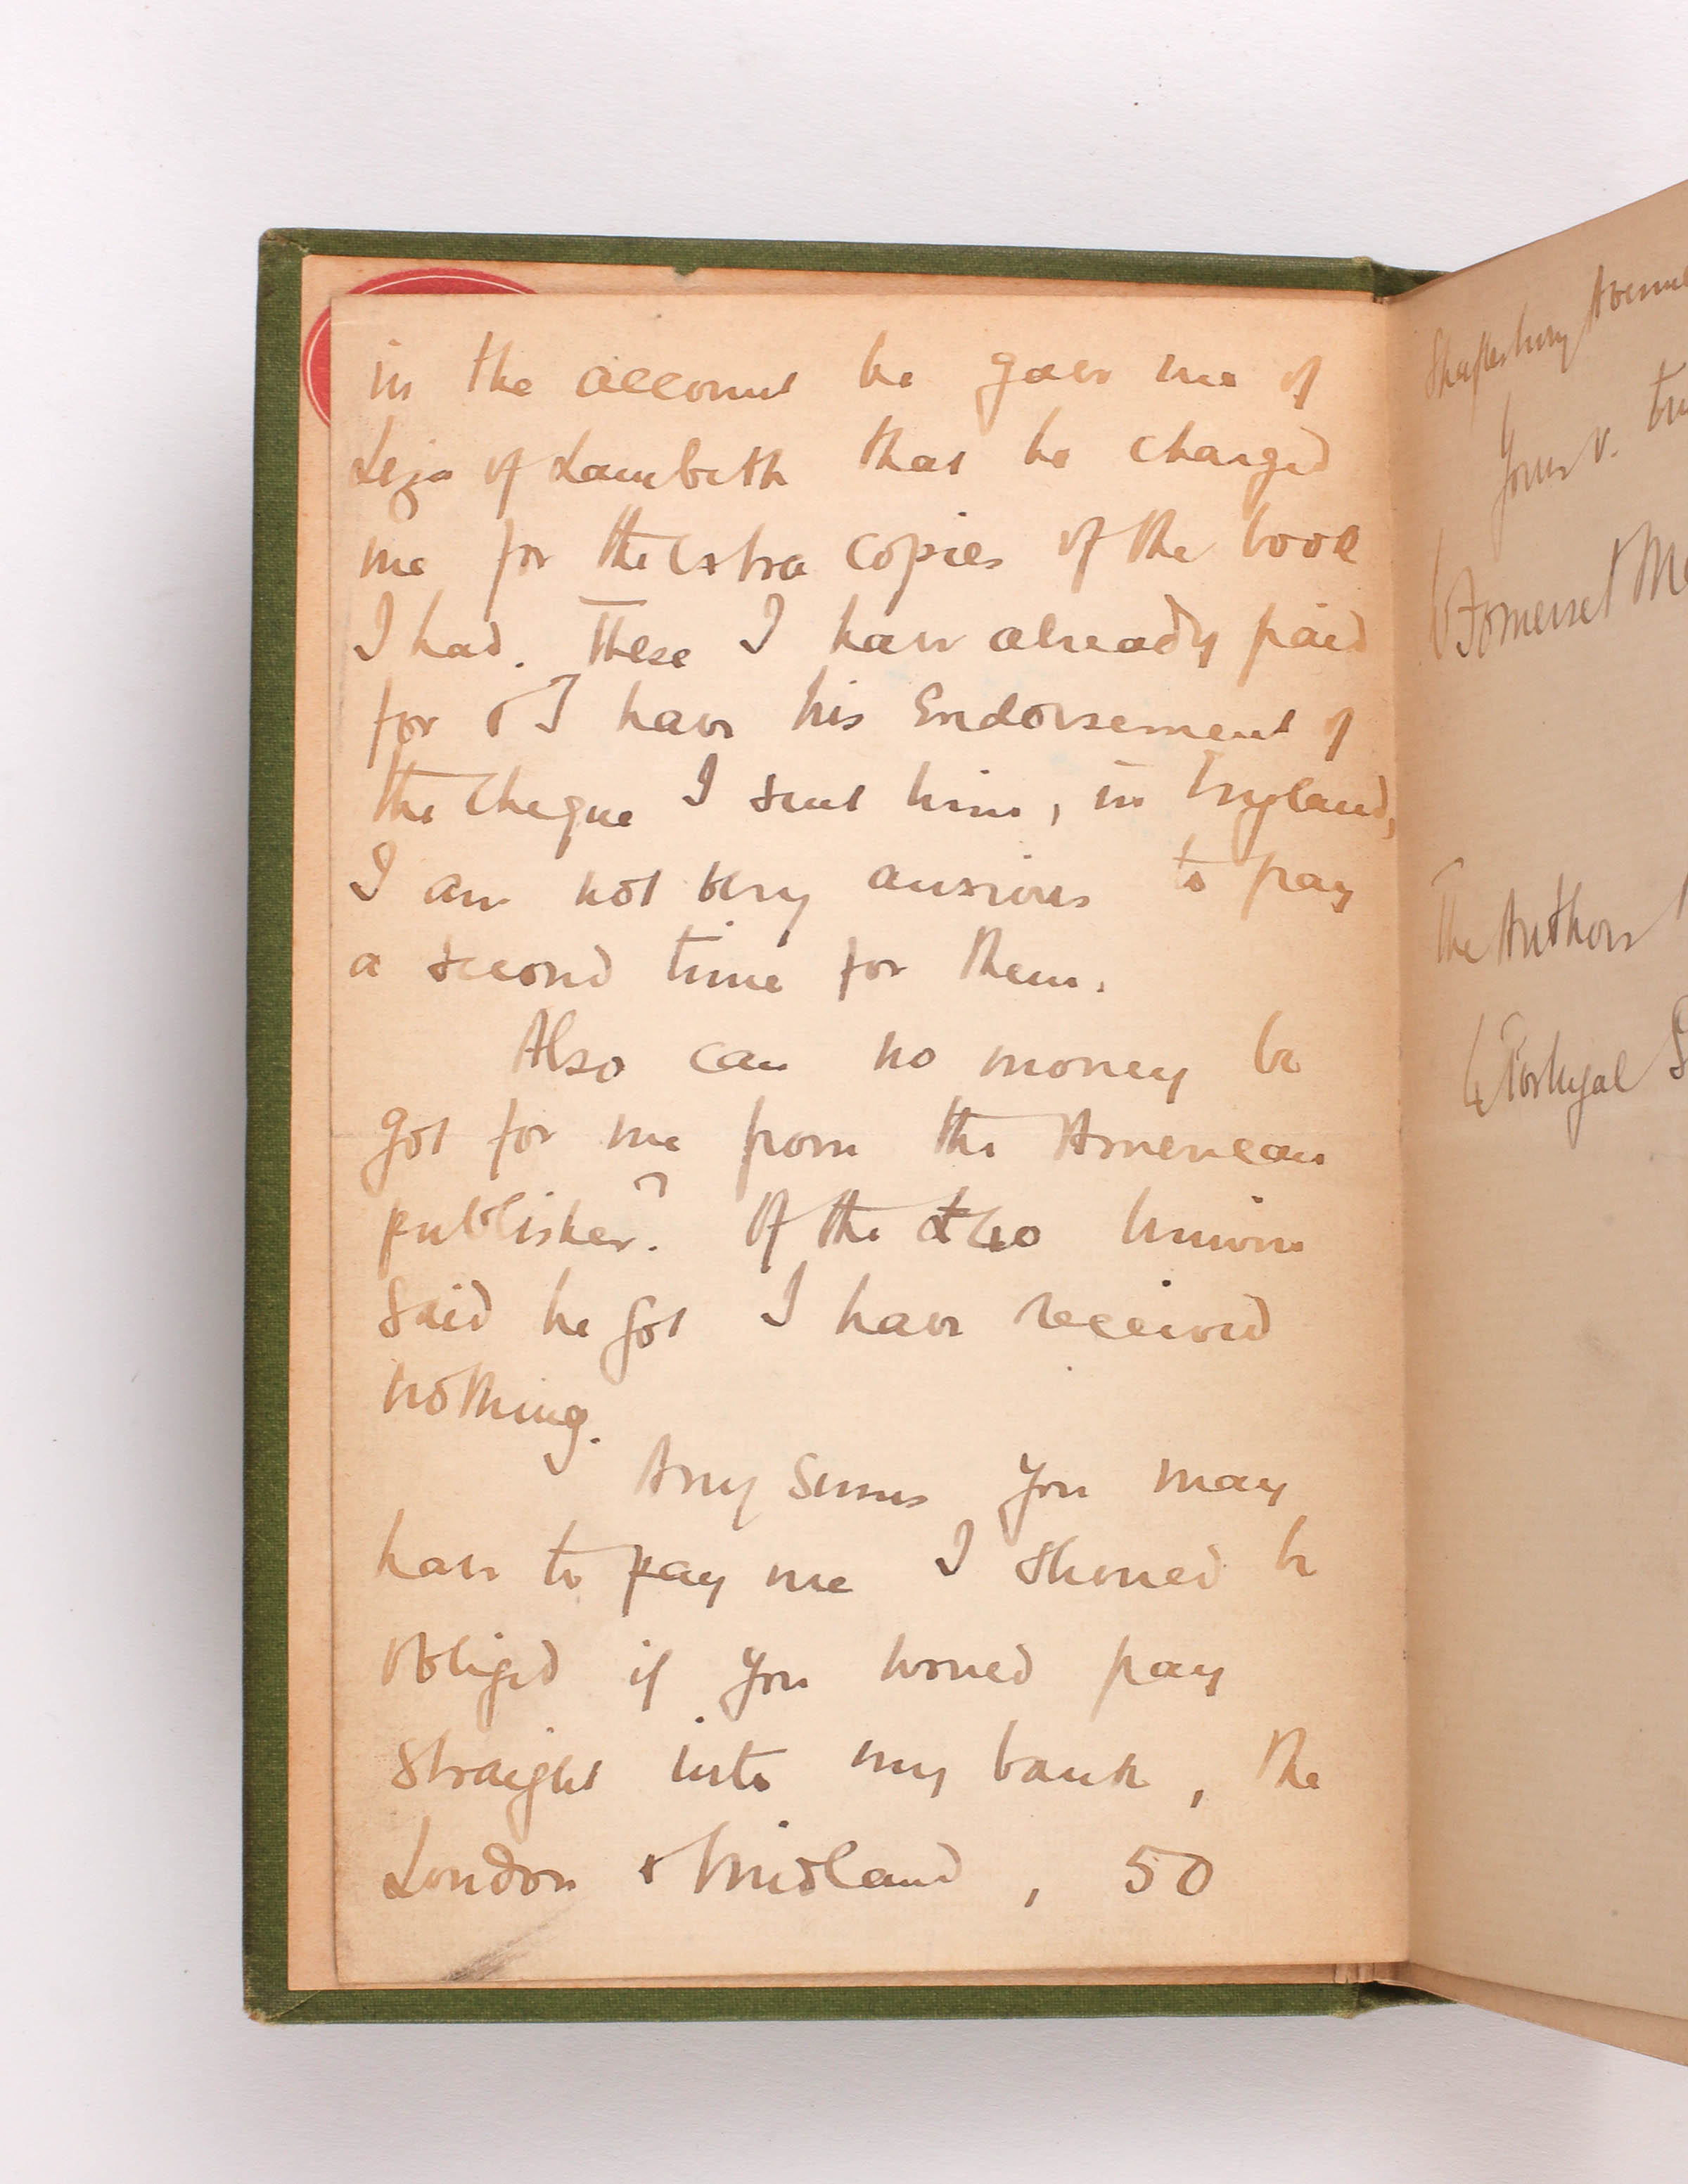 in the account he gave me of
Liza of Lambeth that he charged
me for the extra copies of the book
I had. These I have already paid
for & I have his endorsement of
the cheque I sent him, in England,
I am not very anxious to pay
a second time for them.
Also can no money be
got for me from the American
publisher? Of the £40 Unwin
said he got I have received
nothing.
Any sums you may
have to pay me I should be
obliged if you would pay
straight into my bank, the
London & Midland, 50
Shaftesbury Avenue
Yours v.
W Somerset
The Authors
4 Portugal